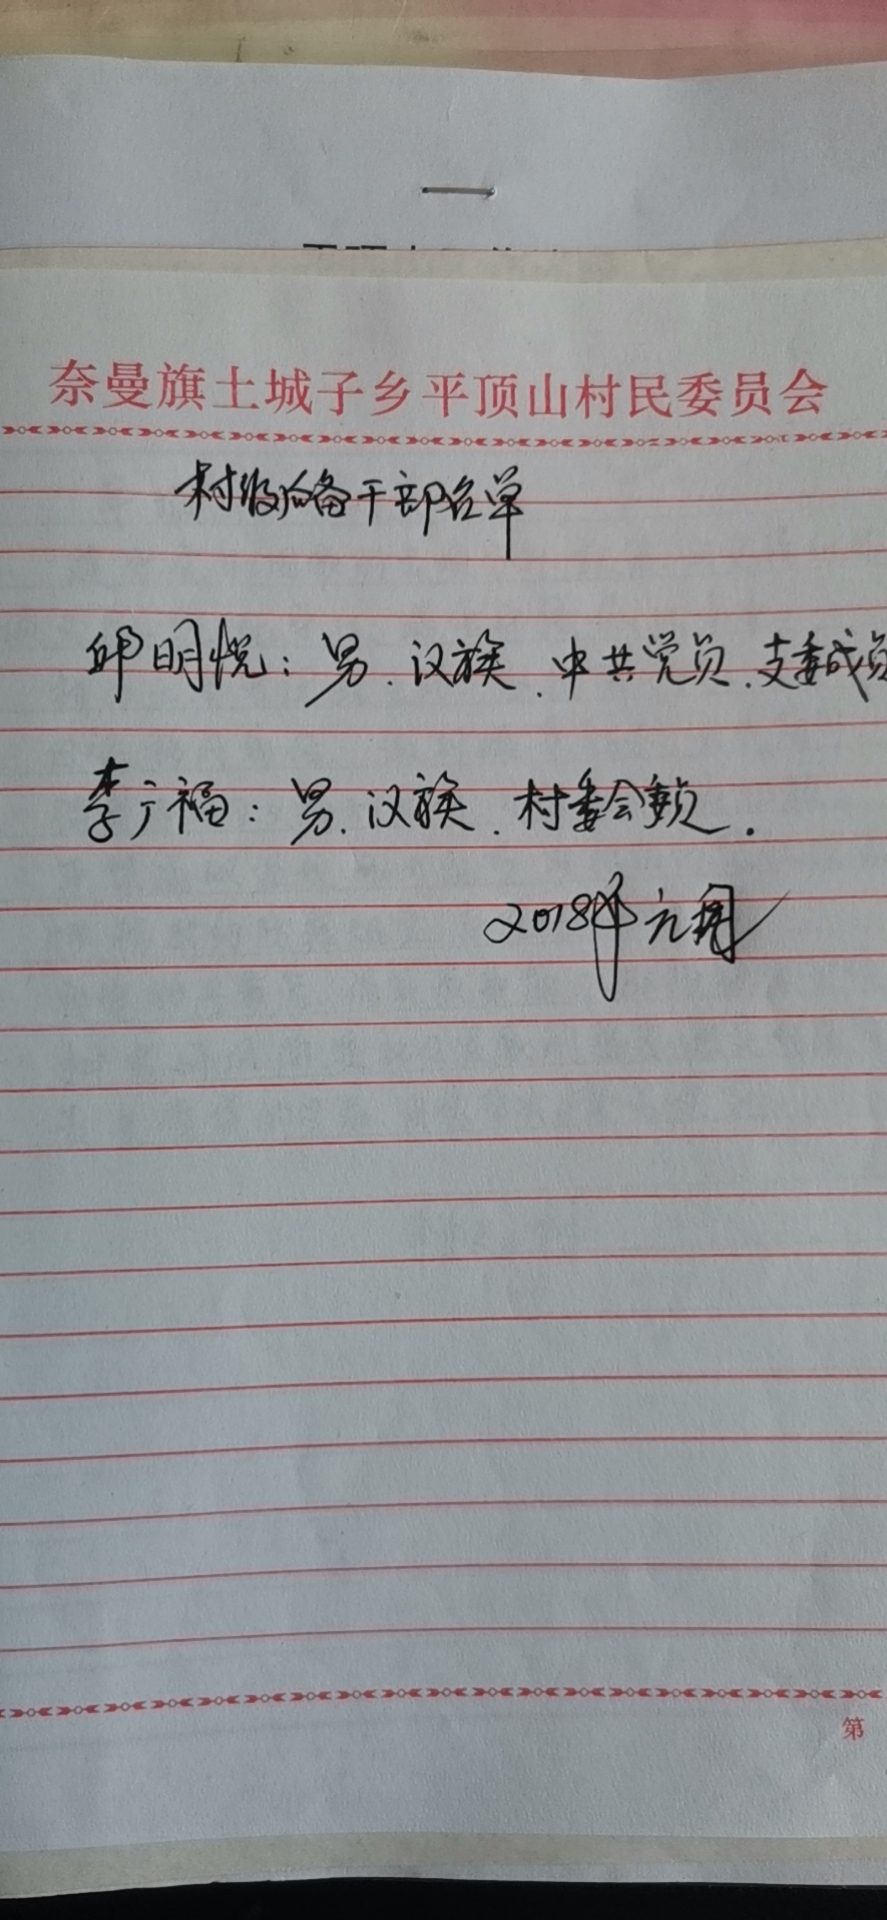 奈曼旗土城子乡平顶山村民委员会
村级后备干部名单
邱明悦：男、汉族、中共党员、支委成员
李广福：男、汉族、村委会委员。
2018年元月
第